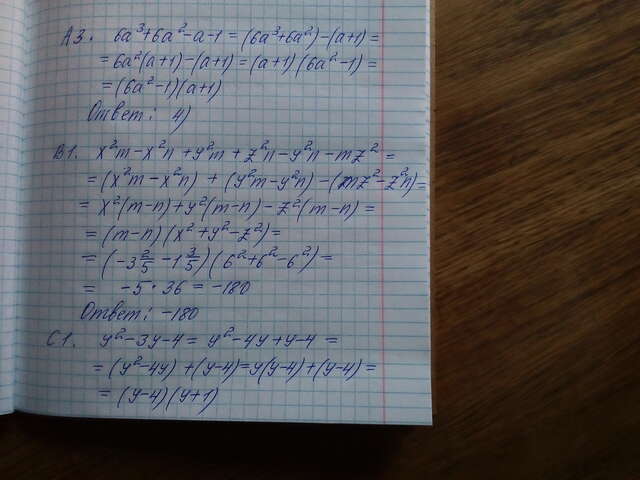 А3. 6a³+6a²-a-1 = (6a³+6a²)-(a+1)=
= 6a²(a+1)-(a+1) = (a+1)(6a²-1) =
= (6a²-1)(a+1)
Ответ: 4)
В1. x²m-x²n+y²m+z²n-y²n-mz² =
= (x²m-x²n) + (y²m-y²n) -(mz²-z²n)=
= x²(m-n)+y²(m-n)-z²(m-n) =
= (m-n)(x²+y²-z²)=
= (-3 2/5 -1 3/5)(6²+6²-6²) =
= -5·36 = -180
Ответ: -180
С1. y²-3y-4 = y²-4y+y-4 =
= (y²-4y)+(y-4)=y(y-4)+(y-4)=
= (y-4)(y+1)